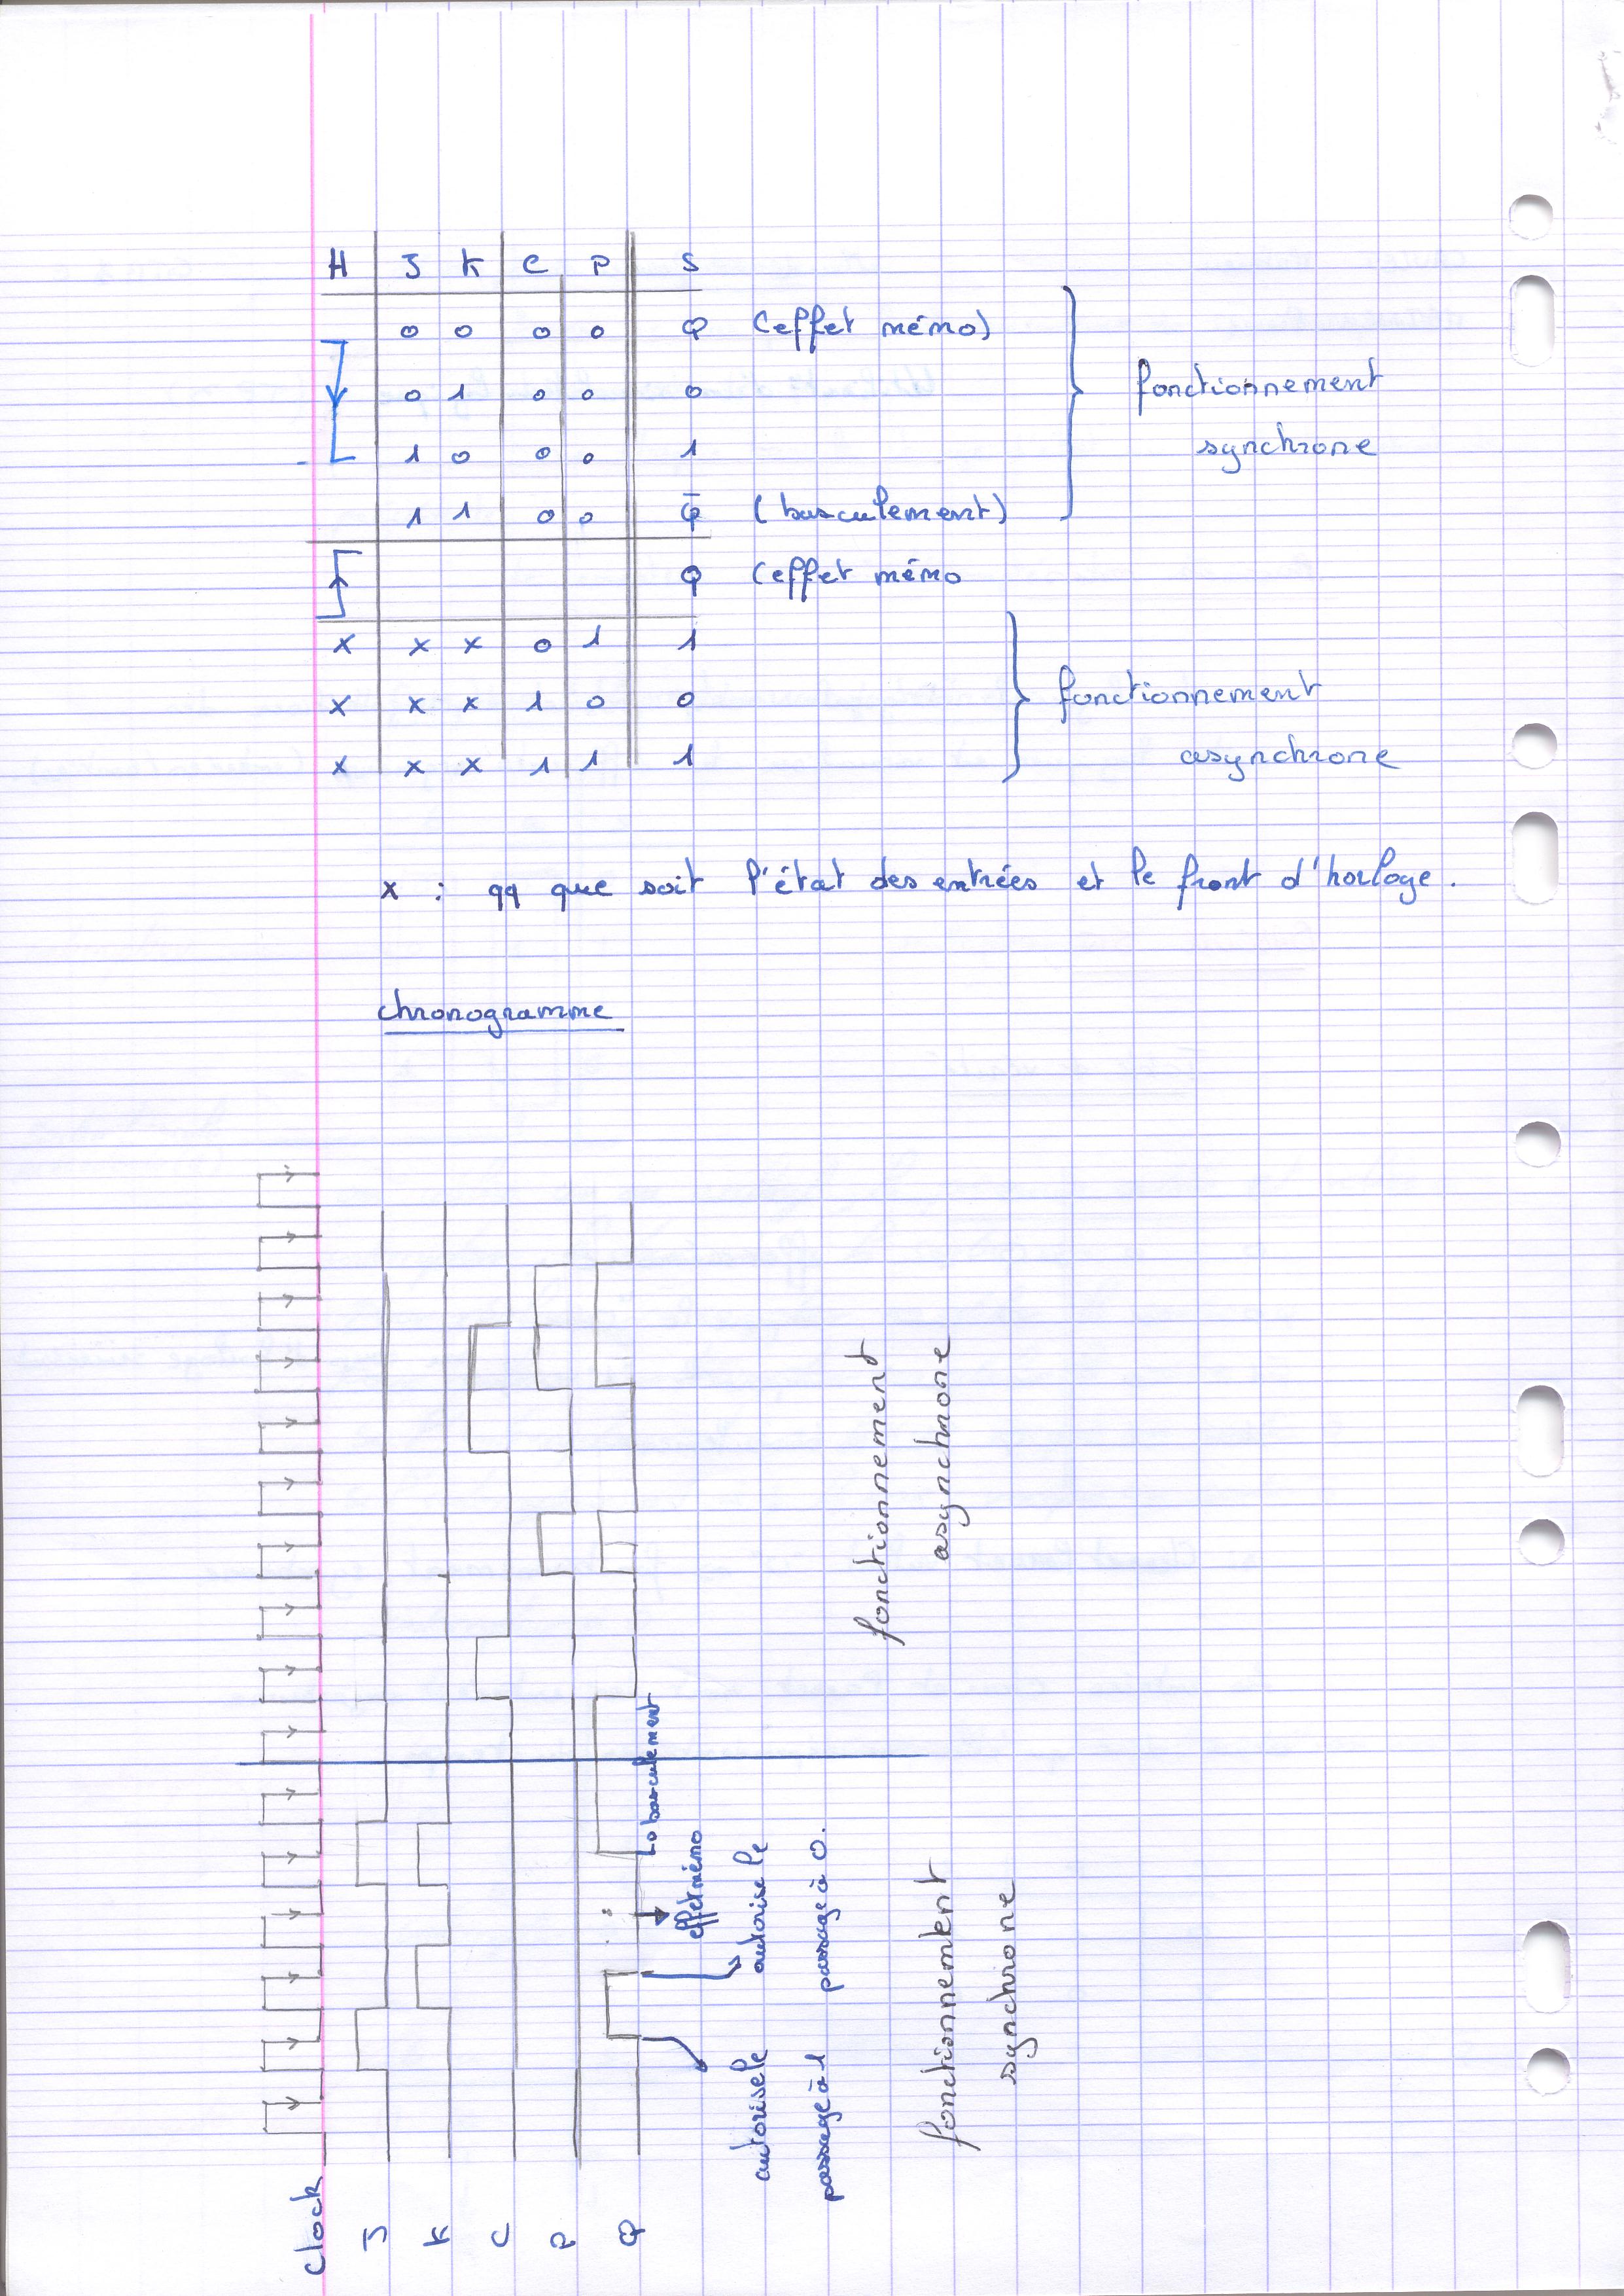 H J K C P S
0 0 0 0 Q (effet mémo)
0 1 0 0 0
1 0 0 0 1
1 1 0 0 Q̄ (basculement)
fonctionnement
synchrone
Q (effet mémo
x x x 0 1 1
x x x 1 0 0
x x x 1 1 1
fonctionnement
asynchrone
x : qq que soit l'état des entrées et le front d'horloge.
chronogramme
clock
J
K
C
P
Q
autorise le
passage à 1
autorise le
passage à 0.
effet mémo
basculement
fonctionnement
synchrone
fonctionnement
asynchrone